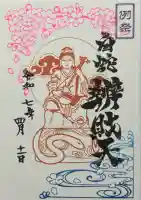 例祭
白蛇辨財天
令和七年四月十二日